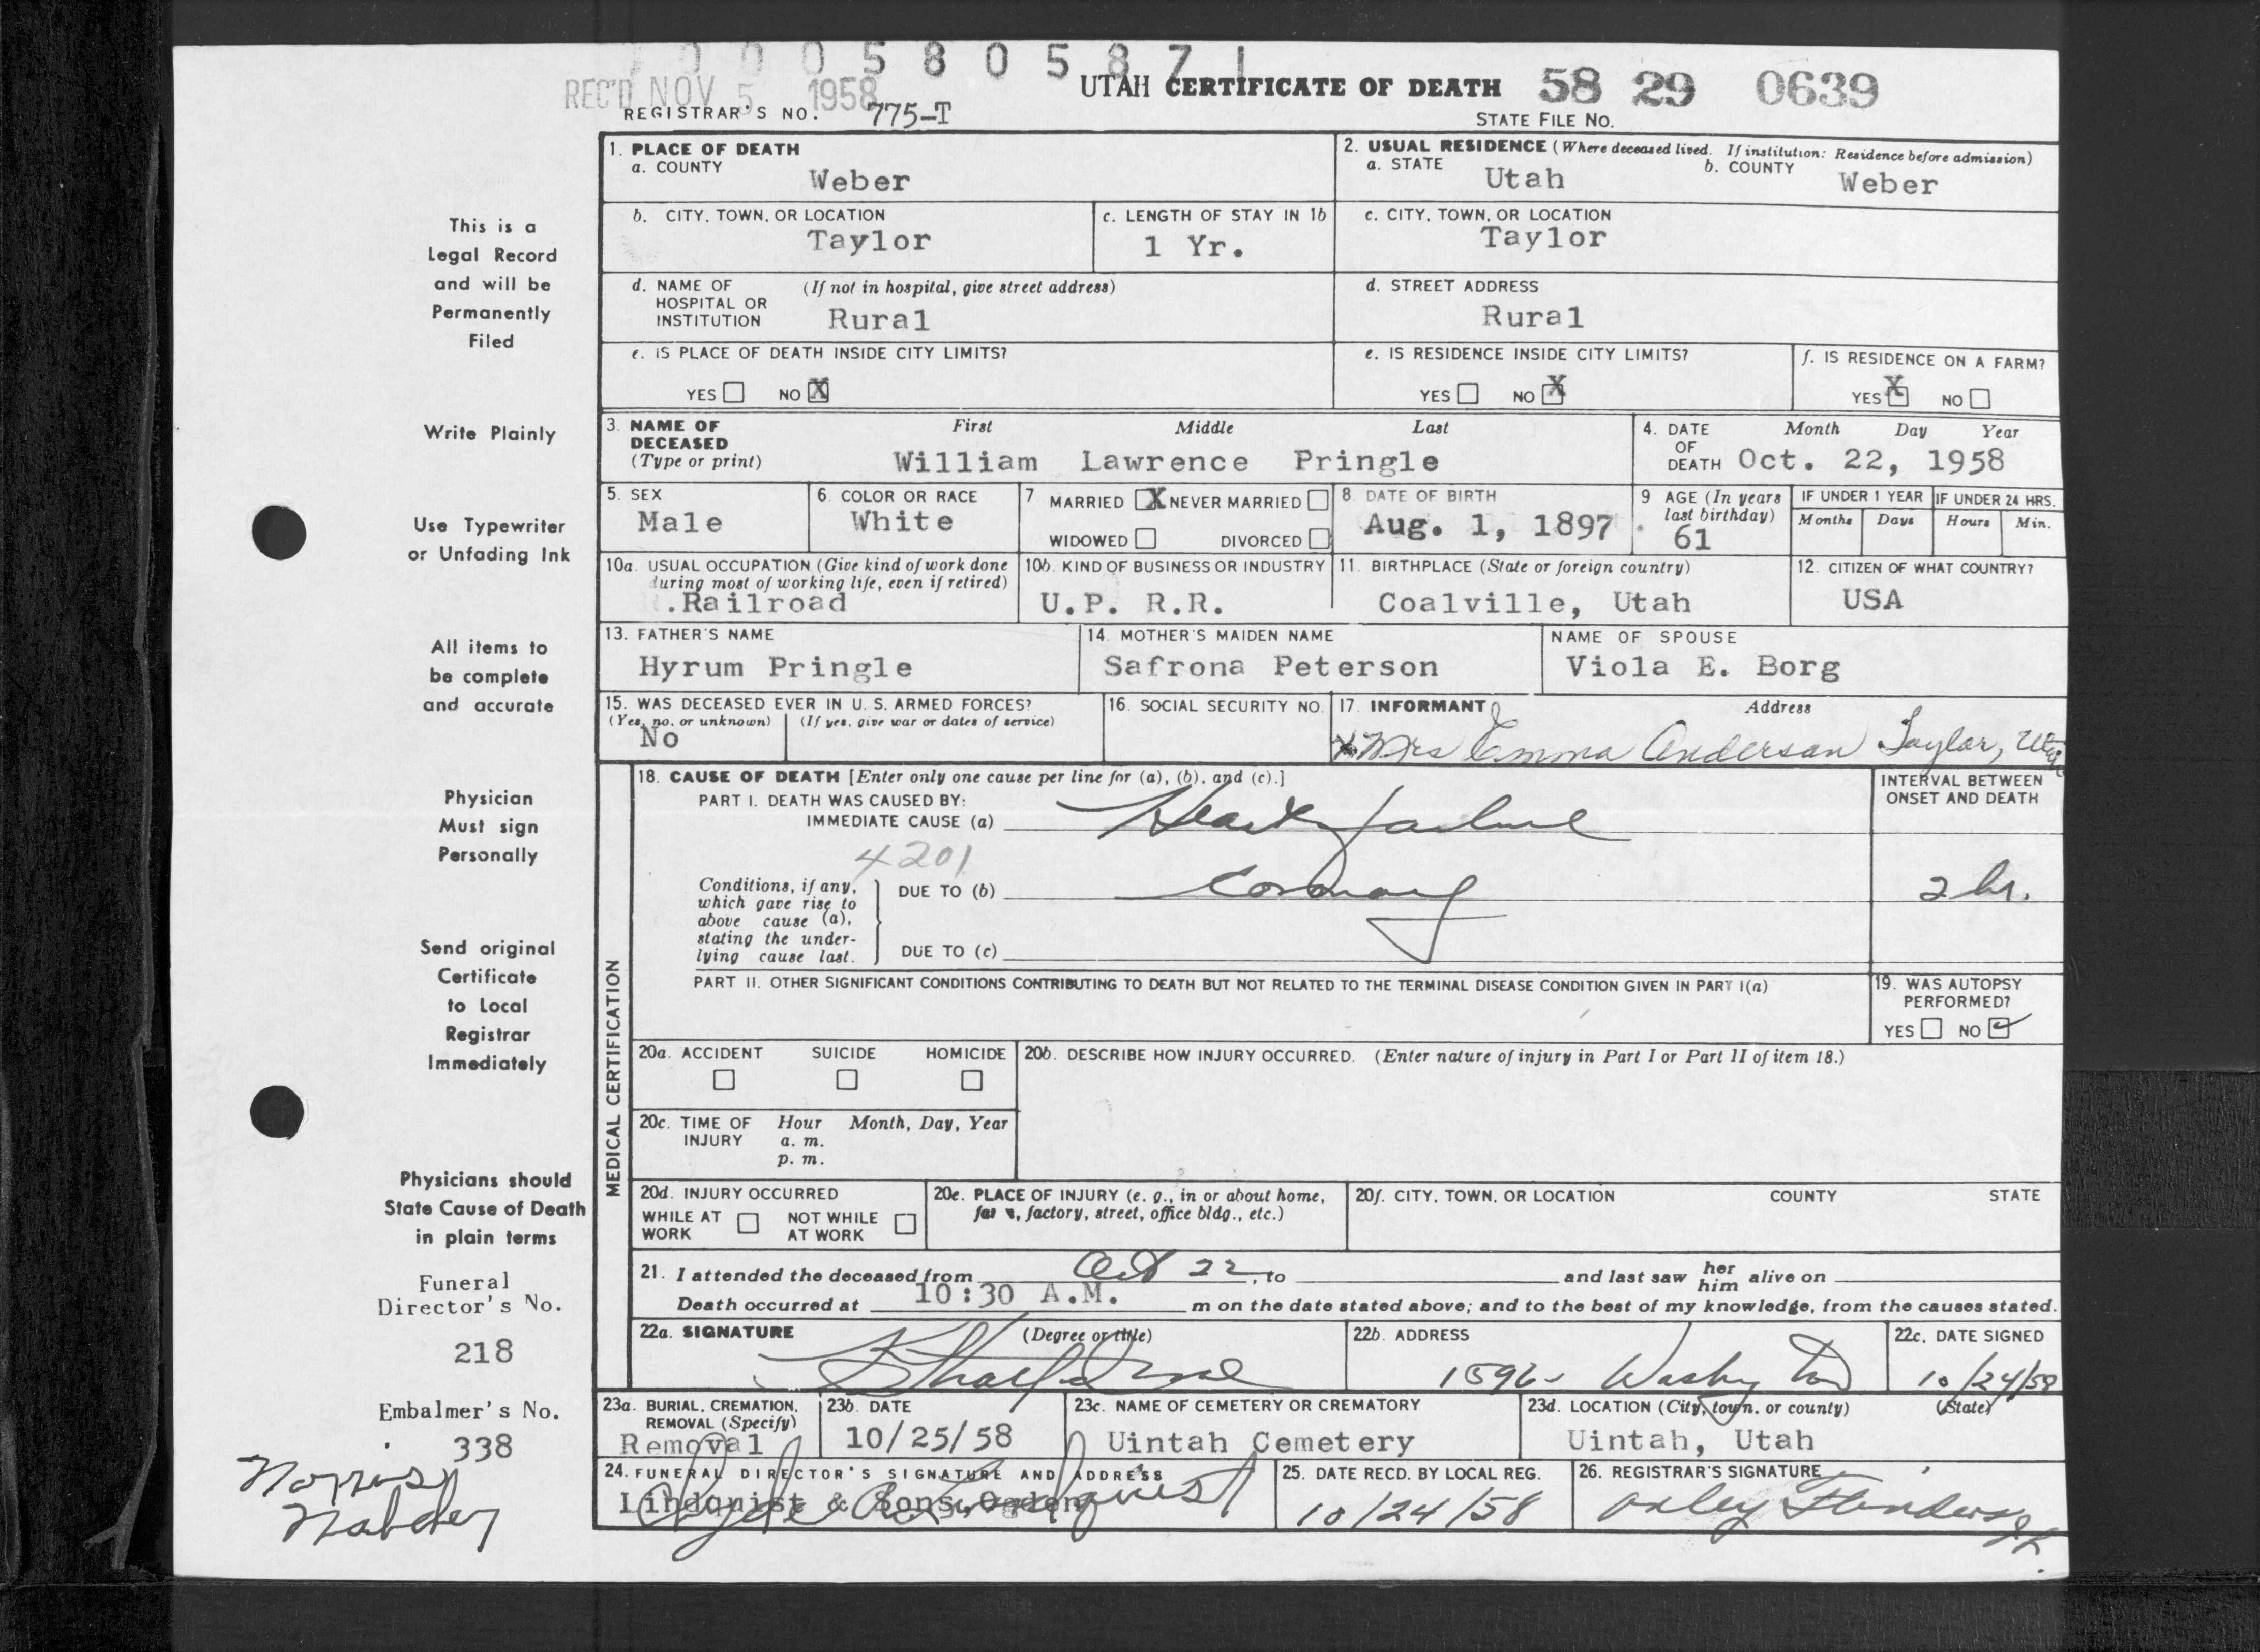 0 0 0 5 8 0 5 8 7 1
REC'D NOV 5 1958
UTAH CERTIFICATE OF DEATH 58 29 0639
REGISTRAR'S NO. 775-T
STATE FILE NO.
1. PLACE OF DEATH
a. COUNTY Weber
2. USUAL RESIDENCE (Where deceased lived. If institution: Residence before admission)
a. STATE Utah b. COUNTY Weber
b. CITY, TOWN, OR LOCATION
Taylor
c. LENGTH OF STAY IN 1b
1 Yr.
c. CITY, TOWN, OR LOCATION
Taylor
d. NAME OF HOSPITAL OR INSTITUTION (If not in hospital, give street address)
Rural
d. STREET ADDRESS
Rural
e. IS PLACE OF DEATH INSIDE CITY LIMITS?
YES NO X
e. IS RESIDENCE INSIDE CITY LIMITS?
YES NO X
f. IS RESIDENCE ON A FARM?
YES X NO
3. NAME OF DECEASED (Type or print)
First Middle Last
William Lawrence Pringle
4. DATE OF DEATH
Month Day Year
Oct. 22, 1958
5. SEX
Male
6. COLOR OR RACE
White
7 MARRIED X NEVER MARRIED
WIDOWED DIVORCED
8. DATE OF BIRTH
Aug. 1, 1897
9 AGE (In years last birthday)
61
IF UNDER 1 YEAR
Months Days
IF UNDER 24 HRS.
Hours Min.
10a. USUAL OCCUPATION (Give kind of work done during most of working life, even if retired)
.Railroad
10b. KIND OF BUSINESS OR INDUSTRY
U.P. R.R.
11. BIRTHPLACE (State or foreign country)
Coalville, Utah
12. CITIZEN OF WHAT COUNTRY?
USA
13. FATHER'S NAME
Hyrum Pringle
14. MOTHER'S MAIDEN NAME
Safrona Peterson
NAME OF SPOUSE
Viola E. Borg
15. WAS DECEASED EVER IN U. S. ARMED FORCES?
(Yes, no, or unknown) (If yes, give war or dates of service)
No
16. SOCIAL SECURITY NO.
17. INFORMANT Address
X Mrs Emma Anderson Taylor, Utah
MEDICAL CERTIFICATION
18. CAUSE OF DEATH [Enter only one cause per line for (a), (b), and (c).]
INTERVAL BETWEEN ONSET AND DEATH
PART I. DEATH WAS CAUSED BY:
IMMEDIATE CAUSE (a) Heart failure
4201
Conditions, if any, which gave rise to above cause (a), stating the underlying cause last.
DUE TO (b) Coronary
2 hr.
DUE TO (c)
PART II. OTHER SIGNIFICANT CONDITIONS CONTRIBUTING TO DEATH BUT NOT RELATED TO THE TERMINAL DISEASE CONDITION GIVEN IN PART I(a)
19. WAS AUTOPSY PERFORMED?
YES NO ✓
20a. ACCIDENT SUICIDE HOMICIDE
20b. DESCRIBE HOW INJURY OCCURRED. (Enter nature of injury in Part I or Part II of item 18.)
20c. TIME OF INJURY Hour Month, Day, Year
a. m.
p. m.
20d. INJURY OCCURRED
WHILE AT WORK NOT WHILE AT WORK
20e. PLACE OF INJURY (e. g., in or about home, farm, factory, street, office bldg., etc.)
20f. CITY, TOWN, OR LOCATION COUNTY STATE
21. I attended the deceased from Oct 22, to and last saw her him alive on
Death occurred at 10:30 A.M. m on the date stated above; and to the best of my knowledge, from the causes stated.
22a. SIGNATURE (Degree or title)
22b. ADDRESS
Washington
22c. DATE SIGNED
10/24/58
23a. BURIAL, CREMATION, REMOVAL (Specify)
Removal
23b. DATE
10/25/58
23c. NAME OF CEMETERY OR CREMATORY
Uintah Cemetery
23d. LOCATION (City, town, or county) (State)
Uintah, Utah
24. FUNERAL DIRECTOR'S SIGNATURE AND ADDRESS
Lindquist & Sons, Ogden
25. DATE RECD. BY LOCAL REG.
10/24/58
26. REGISTRAR'S SIGNATURE
This is a
Legal Record
and will be
Permanently
Filed
Write Plainly
Use Typewriter
or Unfading Ink
All items to
be complete
and accurate
Physician
Must sign
Personally
Send original
Certificate
to Local
Registrar
Immediately
Physicians should
State Cause of Death
in plain terms
Funeral
Director's No.
218
Embalmer's No.
338
Norris